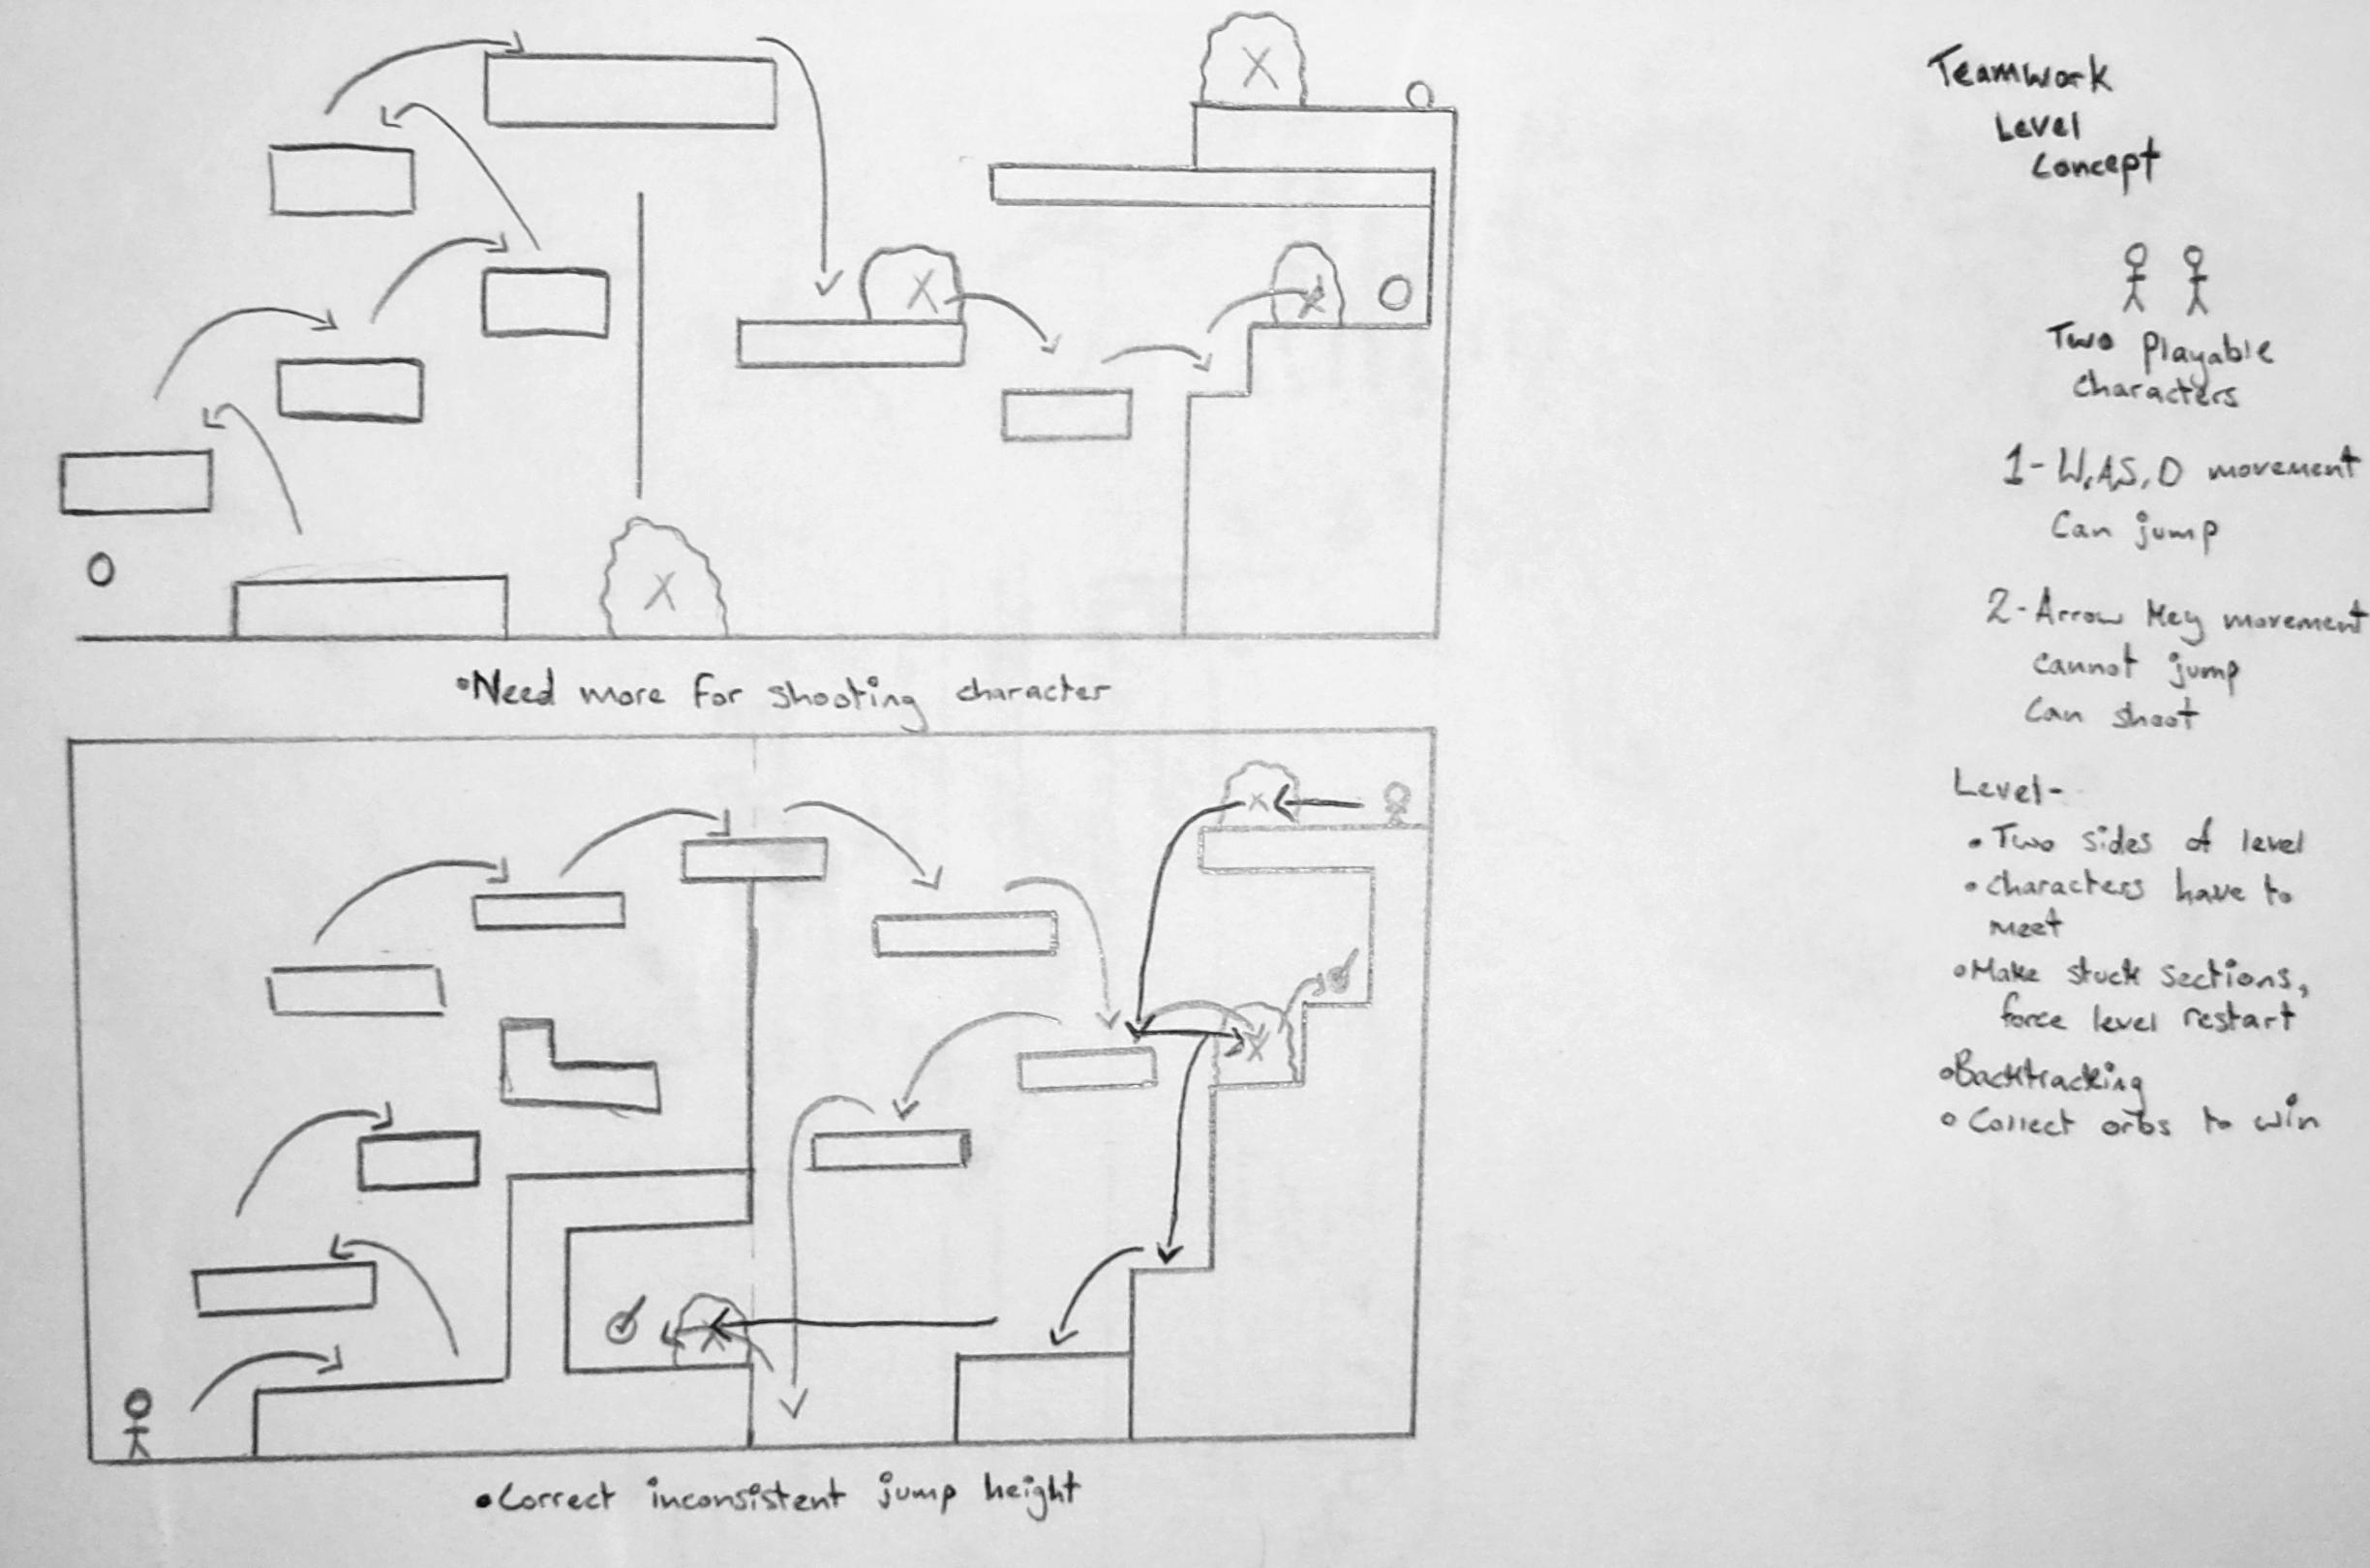 Teamwork
Level
Concept
Two Playable
Characters
1- W,A,S,D movement
Can jump
2- Arrow Key movement
cannot jump
Can shoot
•Need more for shooting character
Level-
• Two sides of level
• characters have to
meet
•Make stuck sections,
force level restart
•Backtracking
• Collect orbs to win
•Correct inconsistent jump height